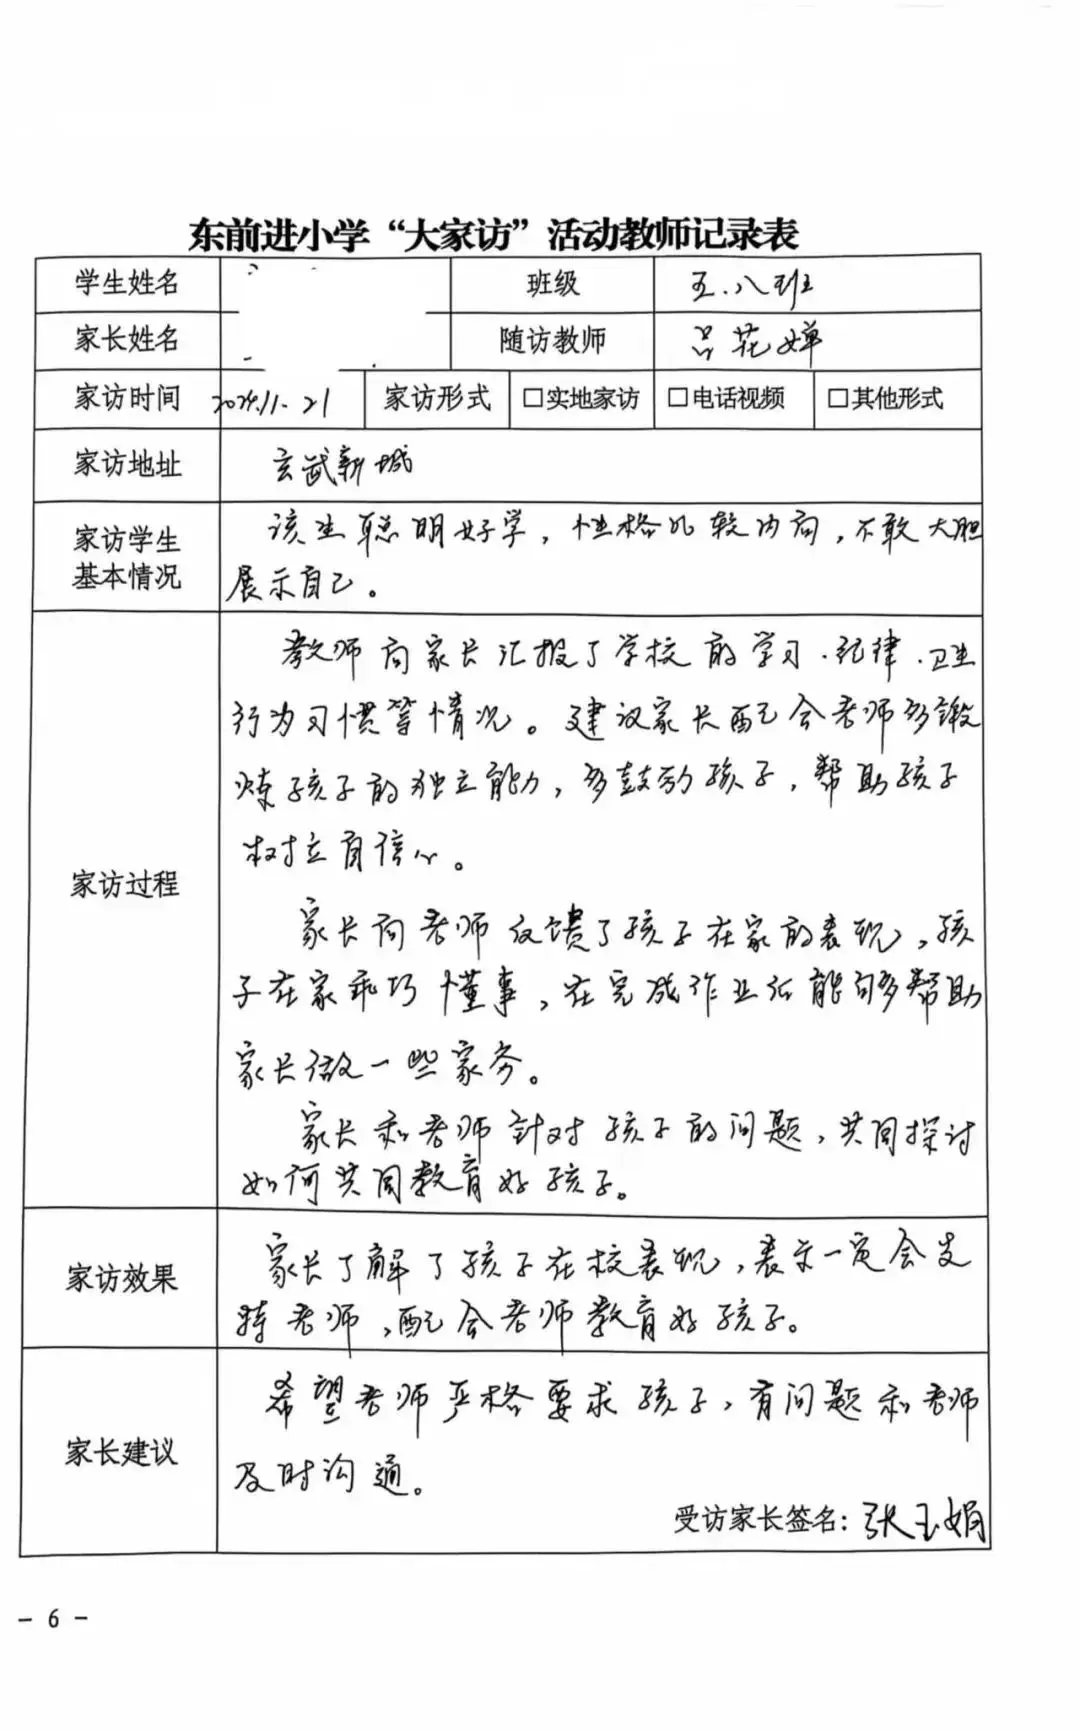 东前进小学“大家访”活动教师记录表
学生姓名 班级 五.八班
家长姓名 随访教师 吕花婵
家访时间 2024.11.21 家访形式 □实地家访 □电话视频 □其他形式
家访地址 玄武新城
家访学生
基本情况
该生聪明好学，性格比较内向，不敢大胆
展示自己。
家访过程
教师向家长汇报了学校的学习.纪律.卫生
行为习惯等情况。建议家长配合老师多锻
炼孩子的独立能力，多鼓励孩子，帮助孩子
树立自信心。
家长向老师反馈了孩子在家的表现，孩
子在家乖巧懂事，在完成作业后能够帮助
家长做一些家务。
家长和老师针对孩子的问题，共同探讨
如何共同教育好孩子。
家访效果
家长了解了孩子在校表现，表示一定会支
持老师，配合老师教育好孩子。
家长建议
希望老师严格要求孩子，有问题和老师
及时沟通。
受访家长签名：张玉娟
- 6 -